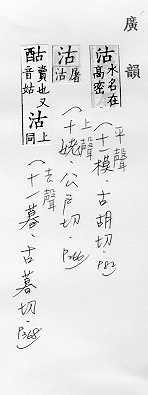 廣韻
沽水名在高密
平聲
(十一模.古胡切.P.82)
沽屠沽
上聲
(十姥.公戶切.P.266)
酤賣也又音姑沽上同
去聲
(十一暮.古暮切.P.368)